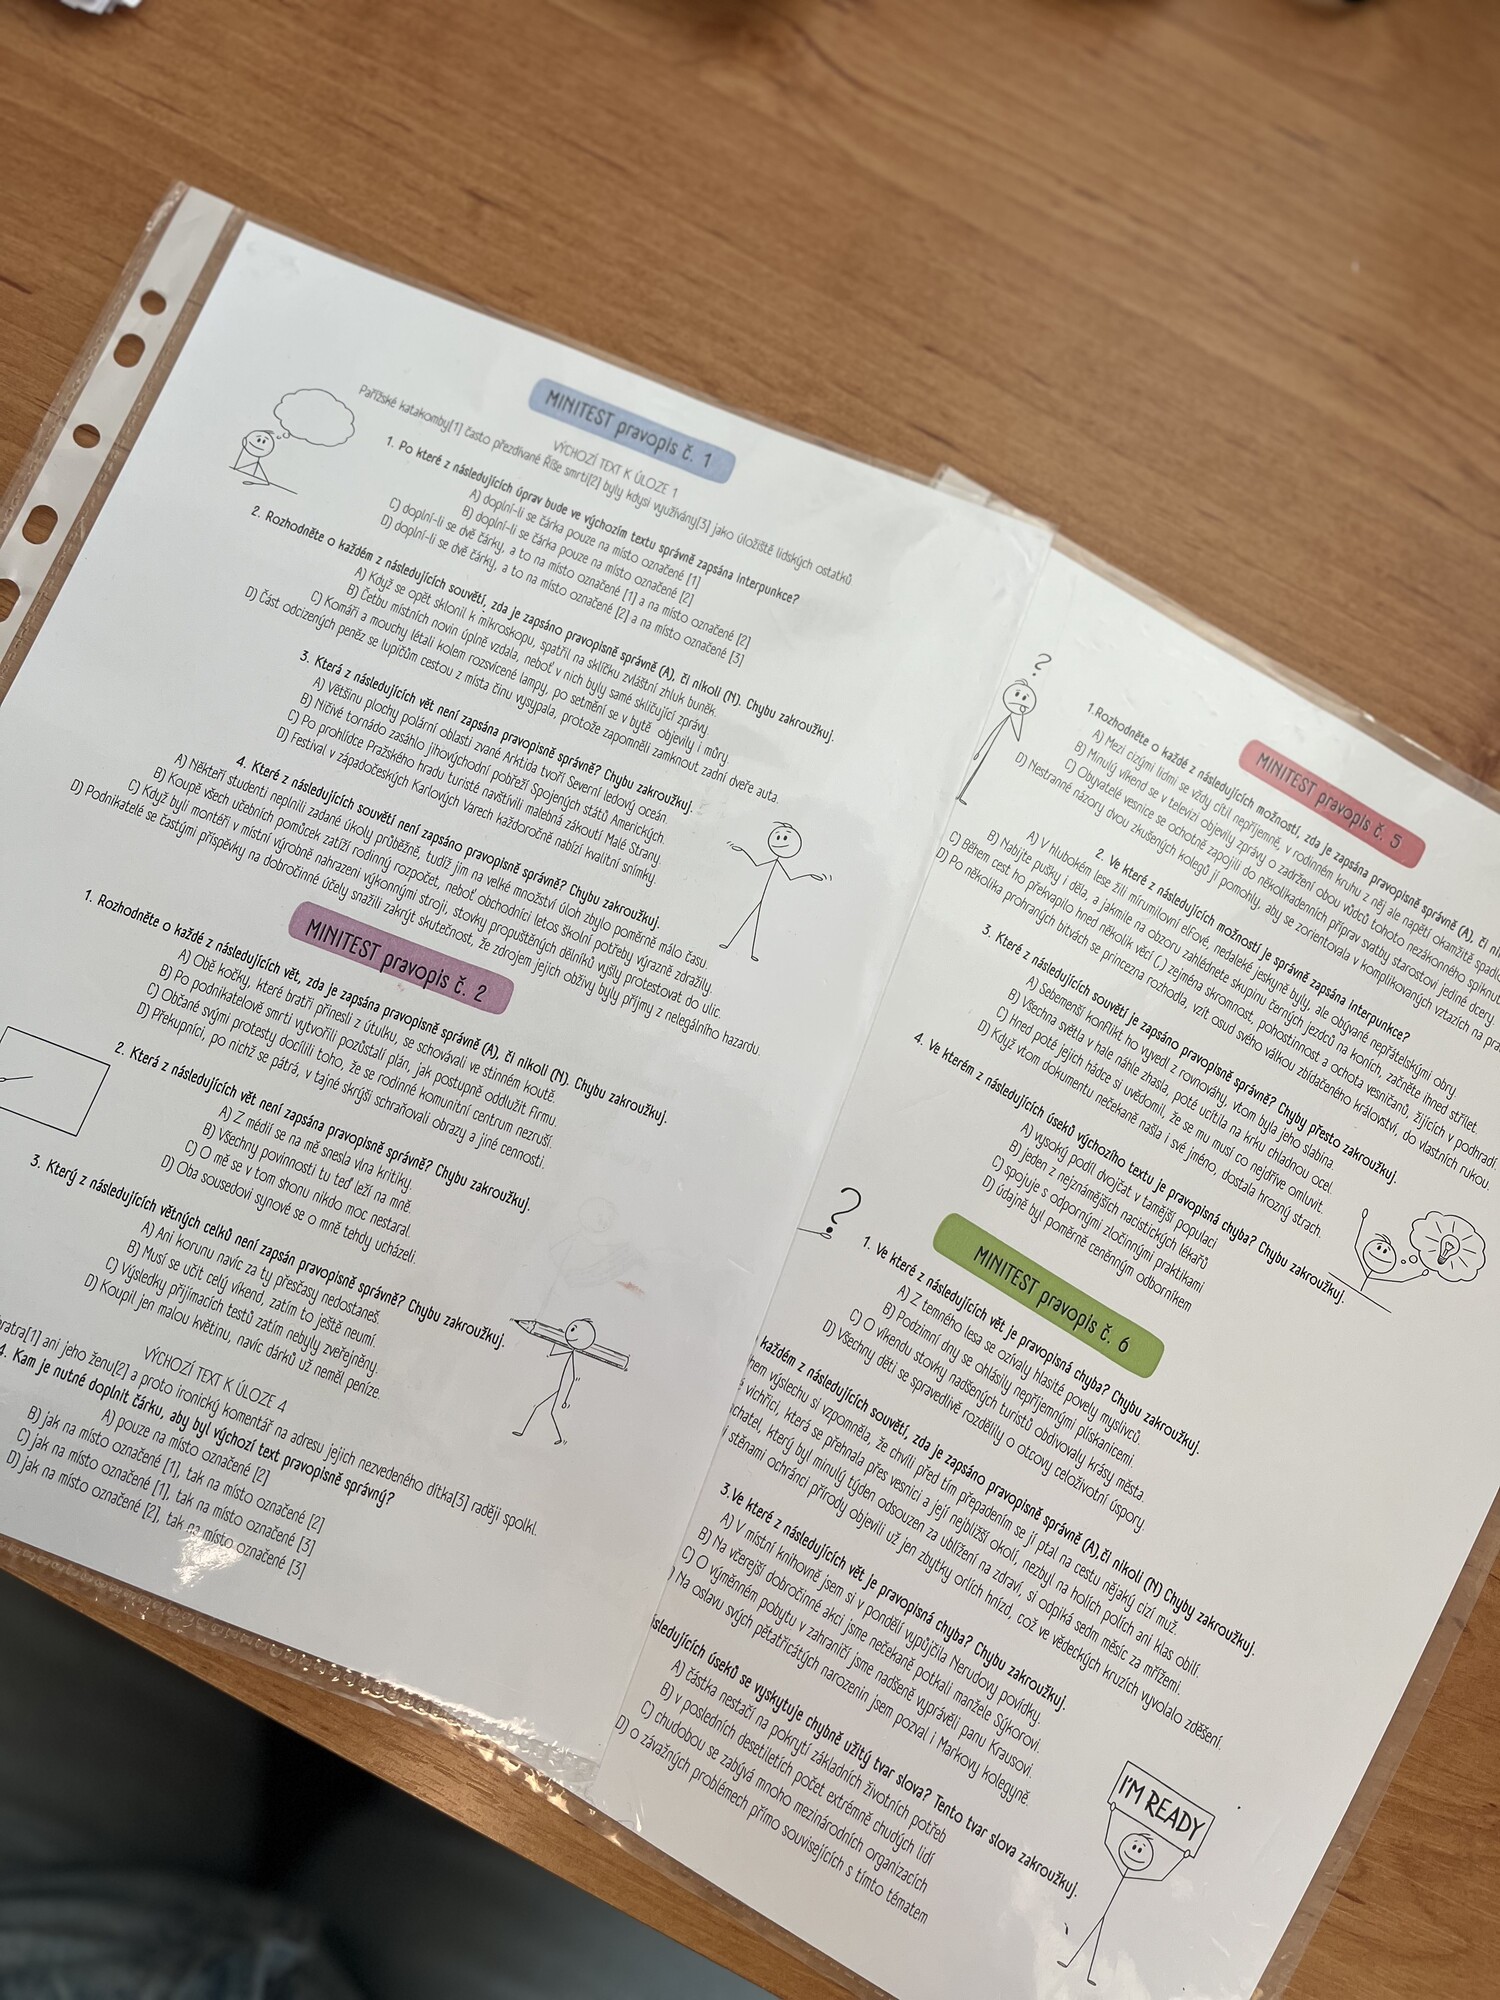 MINITEST pravopis č. 1
VÝCHOZÍ TEXT K ÚLOZE 1
Pařížské katakomby[1] často přezdívané Říše smrti[2] byly kdysi využívány[3] jako úložiště lidských ostatků
1. Po které z následujících úprav bude ve výchozím textu správně zapsána interpunkce?
A) doplní-li se čárka pouze na místo označené [1]
B) doplní-li se čárka pouze na místo označené [2]
C) doplní-li se dvě čárky, a to na místo označené [1] a na místo označené [2]
D) doplní-li se dvě čárky, a to na místo označené [2] a na místo označené [3]
2. Rozhodněte o každém z následujících souvětí, zda je zapsáno pravopisně správně (A), či nikoli (N). Chybu zakroužkuj.
A) Když se opět sklonil k mikroskopu, spatřil na sklíčku zvláštní zhluk buněk.
B) Četbu místních novin úplně vzdala, neboť v nich byly samé skličující zprávy.
C) Komáři a mouchy létali kolem rozsvícené lampy, po setmění se v bytě objevily i můry.
D) Část odcizených peněz se lupičům cestou z místa činu vysypala, protože zapomněli zamknout zadní dveře auta.
3. Která z následujících vět není zapsána pravopisně správně? Chybu zakroužkuj.
A) Většinu plochy polární oblasti zvané Arktida tvoří Severní ledový oceán.
B) Ničivé tornádo zasáhlo jihovýchodní pobřeží Spojených států Amerických.
C) Po prohlídce Pražského hradu turisté navštívili malebná zákoutí Malé Strany.
D) Festival v západočeských Karlových Varech každoročně nabízí kvalitní snímky.
4. Které z následujících souvětí není zapsáno pravopisně správně? Chybu zakroužkuj.
A) Někteří studenti neplnili zadané úkoly průběžně, tudíž jim na velké množství úloh zbylo poměrně málo času.
B) Koupě všech učebních pomůcek zatíží rodinný rozpočet, neboť obchodníci letos školní potřeby výrazně zdražily.
C) Když byli montéři v místní výrobně nahrazeni výkonnými stroji, stovky propuštěných dělníků vyšly protestovat do ulic.
D) Podnikatelé se častými příspěvky na dobročinné účely snažili zakrýt skutečnost, že zdrojem jejich obživy byly příjmy z nelegálního hazardu.
MINITEST pravopis č. 2
1. Rozhodněte o každé z následujících vět, zda je zapsána pravopisně správně (A), či nikoli (N). Chybu zakroužkuj.
A) Obě kočky, které bratři přinesli z útulku, se schovávali ve stinném koutě.
B) Po podnikatelově smrti vytvořili pozůstalí plán, jak postupně oddlužit firmu.
C) Občané svými protesty docílili toho, že se rodinné komunitní centrum nezruší.
D) Překupníci, po nichž se pátrá, v tajné skrýši schraňovali obrazy a jiné cennosti.
2. Která z následujících vět není zapsána pravopisně správně? Chybu zakroužkuj.
A) Z médií se na mě snesla vlna kritiky.
B) Všechny povinnosti tu teď leží na mně.
C) O mě se v tom shonu nikdo moc nestaral.
D) Oba sousedovi synové se o mně tehdy ucházeli.
3. Který z následujících větných celků není zapsán pravopisně správně? Chybu zakroužkuj.
A) Ani korunu navíc za ty přesčasy nedostaneš.
B) Musí se učit celý víkend, zatím to ještě neumí.
C) Výsledky přijímacích testů zatím nebyly zveřejněny.
D) Koupil jen malou květinu, navíc dárků už neměl peníze.
VÝCHOZÍ TEXT K ÚLOZE 4
bratra[1] ani jeho ženu[2] a proto ironický komentář na adresu jejich nezvedeného dítka[3] raději spolkl.
4. Kam je nutné doplnit čárku, aby byl výchozí text pravopisně správný?
A) pouze na místo označené [2]
B) jak na místo označené [1], tak na místo označené [2]
C) jak na místo označené [1], tak na místo označené [3]
D) jak na místo označené [2], tak na místo označené [3]
MINITEST pravopis č. 5
1.Rozhodněte o každé z následujících možností, zda je zapsána pravopisně správně (A), či
A) Mezi cizými lidmi se vždy cítil nepříjemně, v rodinném kruhu z něj ale napětí okamžitě
B) Minulý víkend se v televizi objevily zprávy o zadržení obou vůdců tohoto nezákonného
C) Obyvatelé vesnice se ochotně zapojili do několikadenních příprav svatby starostovi jediné dcery.
D) Nestranné názory dvou zkušených kolegů jí pomohly, aby se zorientovala v komplikovaných vztazích na
2. Ve které z následujících možností je správně zapsána interpunkce?
A) V hlubokém lese žili mírumilovní elfové, nedaleké jeskyně byly, ale obývané nepřátelskými obry.
B) Nabijte pušky i děla, a jakmile na obzoru zahlédnete skupinu černých jezdců na koních, začněte ihned střílet.
C) Během cest ho překvapilo hned několik věcí (,) zejména skromnost, pohostinnost a ochota vesničanů, žijících v podhradí.
D) Po několika prohraných bitvách se princezna rozhodla, vzít osud svého válkou zbídačeného království, do vlastních rukou.
3. Které z následujících souvětí je zapsáno pravopisně správně? Chyby přesto zakroužkuj.
A) Sebemenší konflikt ho vyvedl z rovnováhy, vtom byla jeho slabina.
B) Všechna světla v hale náhle zhasla, poté ucítila na krku chladnou ocel.
C) Hned poté jejich hádce si uvědomil, že se mu musí co nejdříve omluvit.
D) Když vtom dokumentu nečekaně našla i své jméno, dostala hrozný strach.
4. Ve kterém z následujících úseků výchozího textu je pravopisná chyba? Chybu zakroužkuj.
A) vysoký podíl dvojčat v tamější populaci
B) jeden z nejznámějších nacistických lékařů
C) spojuje s odpornými zločinnými praktikami
D) údajně byl poměrně ceněným odborníkem
MINITEST pravopis č. 6
1. Ve které z následujících vět je pravopisná chyba? Chybu zakroužkuj.
A) Z temného lesa se ozívaly hlasité povely myslivců.
B) Podzimní dny se ohlásily nepříjemnými plískanicemi.
C) O víkendu stovky nadšených turistů obdivovaly krásy města.
D) Všechny děti se spravedlivě rozdělily o otcovy celoživotní úspory.
každém z následujících souvětí, zda je zapsáno pravopisně správně (A),či nikoli (N) Chyby zakroužkuj.
výslechu si vzpomněla, že chvíli před tím přepadením se jí ptal na cestu nějaký cizí muž.
vichřici, která se přehnala přes vesnici a její nejbližší okolí, nezbyl na holích polích ani klas obilí.
který byl minulý týden odsouzen za ublížení na zdraví, si odpiká sedm měsíc za mřížemi.
stěnami ochránci přírody objevili už jen zbytky orlích hnízd, což ve vědeckých kruzích vyvolalo zděšení.
3.Ve které z následujících vět je pravopisná chyba? Chybu zakroužkuj.
A) V místní knihovně jsem si v pondělí vypůjčila Nerudovy povídky.
B) Na včerejší dobročinné akci jsme nečekaně potkali manžele Sýkorovi.
C) O výměnném pobytu v zahraničí jsme nadšeně vyprávěli panu Krausovi.
) Na oslavu svých pětatřicátých narozenin jsem pozval i Markovy kolegyně.
následujících úseků se vyskytuje chybně užitý tvar slova? Tento tvar slova zakroužkuj.
A) částka nestačí na pokrytí základních životních potřeb
B) v posledních desetiletích počet extrémně chudých lidí
C) chudobou se zabývá mnoho mezinárodních organizacích
D) o závažných problémech přímo souvisejících s tímto tématem
I'M READY